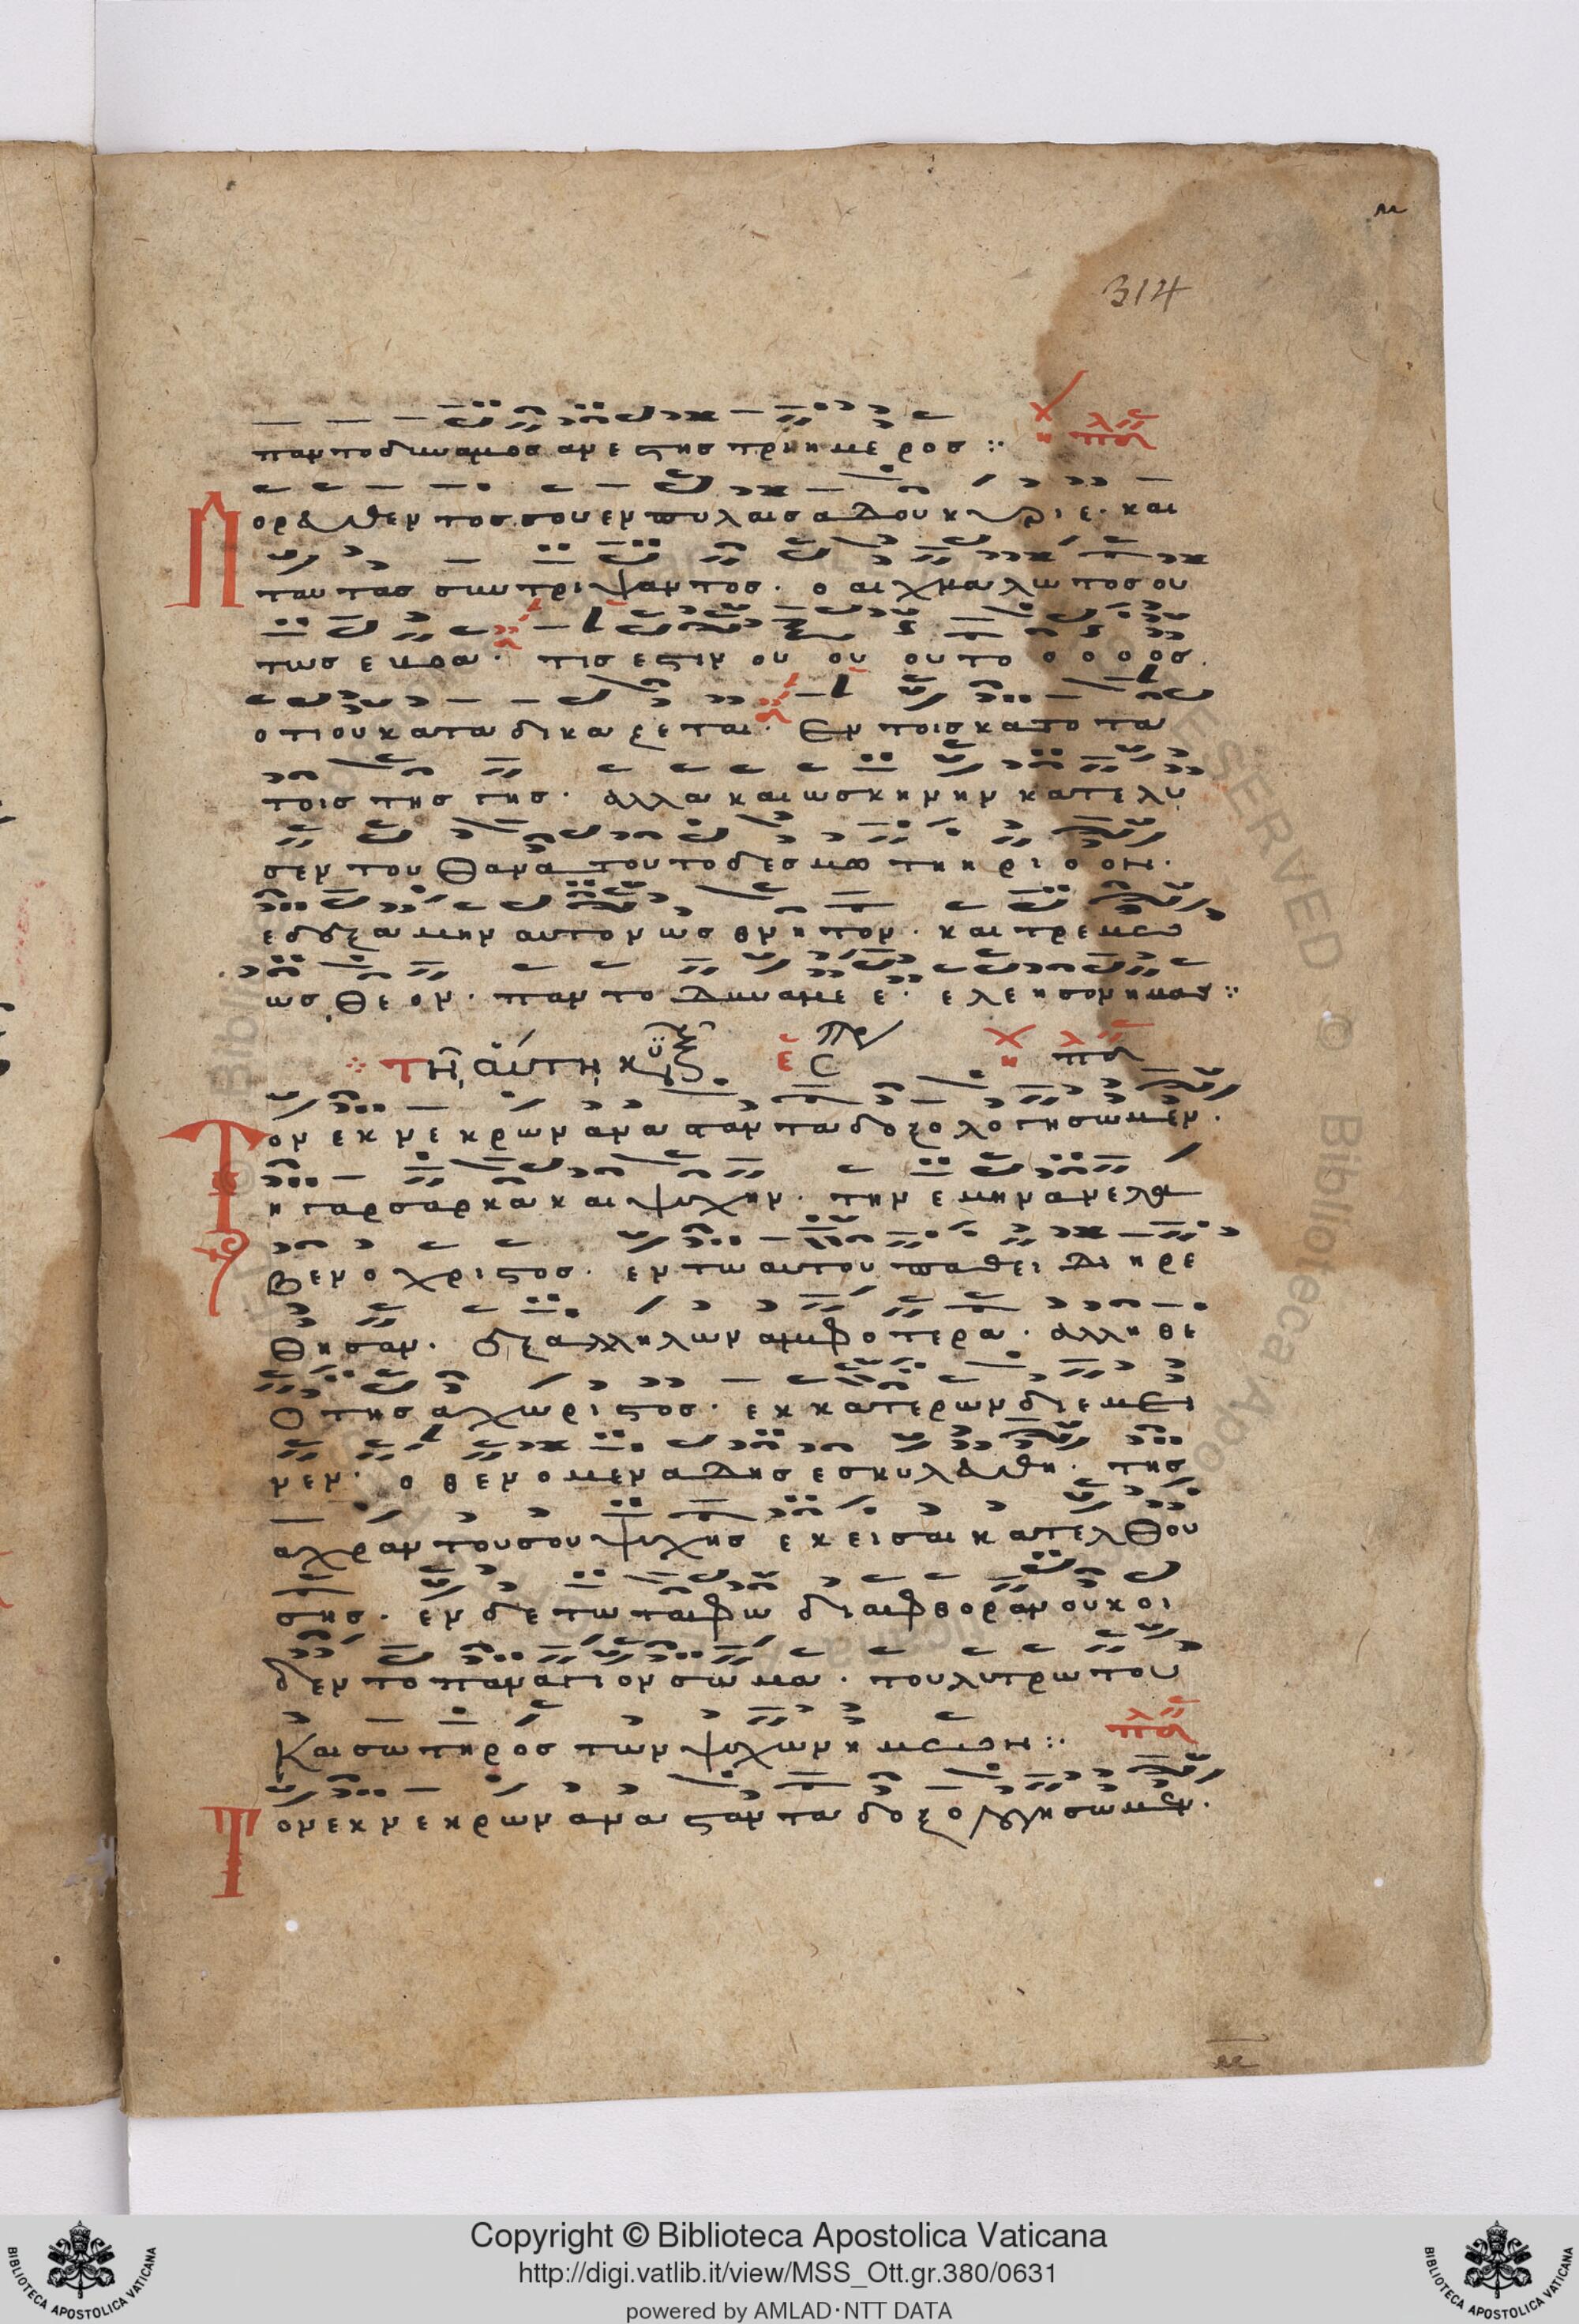 314
παντοδυναμος ανεστης τριημερος :·
Πορθηθεντος σου εν πυλαις αδου κυριε · και
ταυτας συντριψαντος · ο αιχμαλωτος ου
τως εβοα · τις εστιν ου ου ουτο ο ο ο ος ·
οτι ου καταδικαζεται · Εν τοις κατοτα
τοις της γης · αλλα και ως σκηνην κατελυ
σεν του Θανατου το δεσμω τη η ρι ο ον ·
εδεξαμην αυτον ως θνητον · και τρεμω
ως Θεον · παντοδυναμε ε · ελεησον ημας :·
τῆ αὐτῆ κυ
Τον εκ νεκρων ανασταντα δοξολογησωμεν ·
η γαρ σαρκα και ψυχην · την εμην ανελα
βεν ο χριστος · εν τω αυτου παθει διηρε
Θησαν · εξ αλληλων αμφοτερα · αλλη θε
Οτης αχωριστος · εκκατερων διεμει
νεν · οθεν ο μεν αδης εσκυλευθη · της
αχραντου σου ψυχης εκεισαι κατελθου
σης · εν δε τω ταφω διαφθοραν ουκ οι
δεν το παναγιον σωμα · του λυτρωτου
Και σωτηρος των ψυχων ημων :·
Τον εκ νεκρων ανασταντα δοξολογησωμεν ·
RESERVED © Biblioteca Apostolica Vaticana
Copyright © Biblioteca Apostolica Vaticana
http://digi.vatlib.it/view/MSS_Ott.gr.380/0631
powered by AMLAD·NTT DATA
BIBLIOTECA APOSTOLICA VATICANA
BIBLIOTECA APOSTOLICA VATICANA